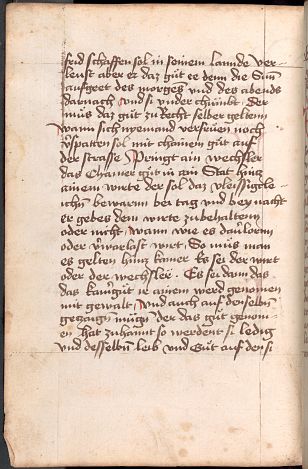 frid schaffen sol in seinem lannde ver
leust aber er daz gut ee denn die Sun
aufgeet des morgens und des abends
darnach und si under chumbt der
mus daz gut zu Recht selber gelten
wann sich nyemand verseuen noch
verspatten sol mit chainen gut auf
der strasse Pringt ain wechsler
das Chamer gut in ain Stat hincz
ainem wirte der sol daz vleissigcle
ichen bewarnn bei tag und bey nacht
er gebes dem wirte zubehalten
oder nicht wann wie es da verlorn
oder verwarlast wirt So mus man
es gelten hincz kamer Es sei der wirt
oder der wechsler Es sei dann das
das kamergut in ainem werd genomen
mit gewalt und auch auf denselben
geczaugen mugen der das gut genom
en hat zuhannt so werdent si ledig
und desselben leib und Gut auf den si